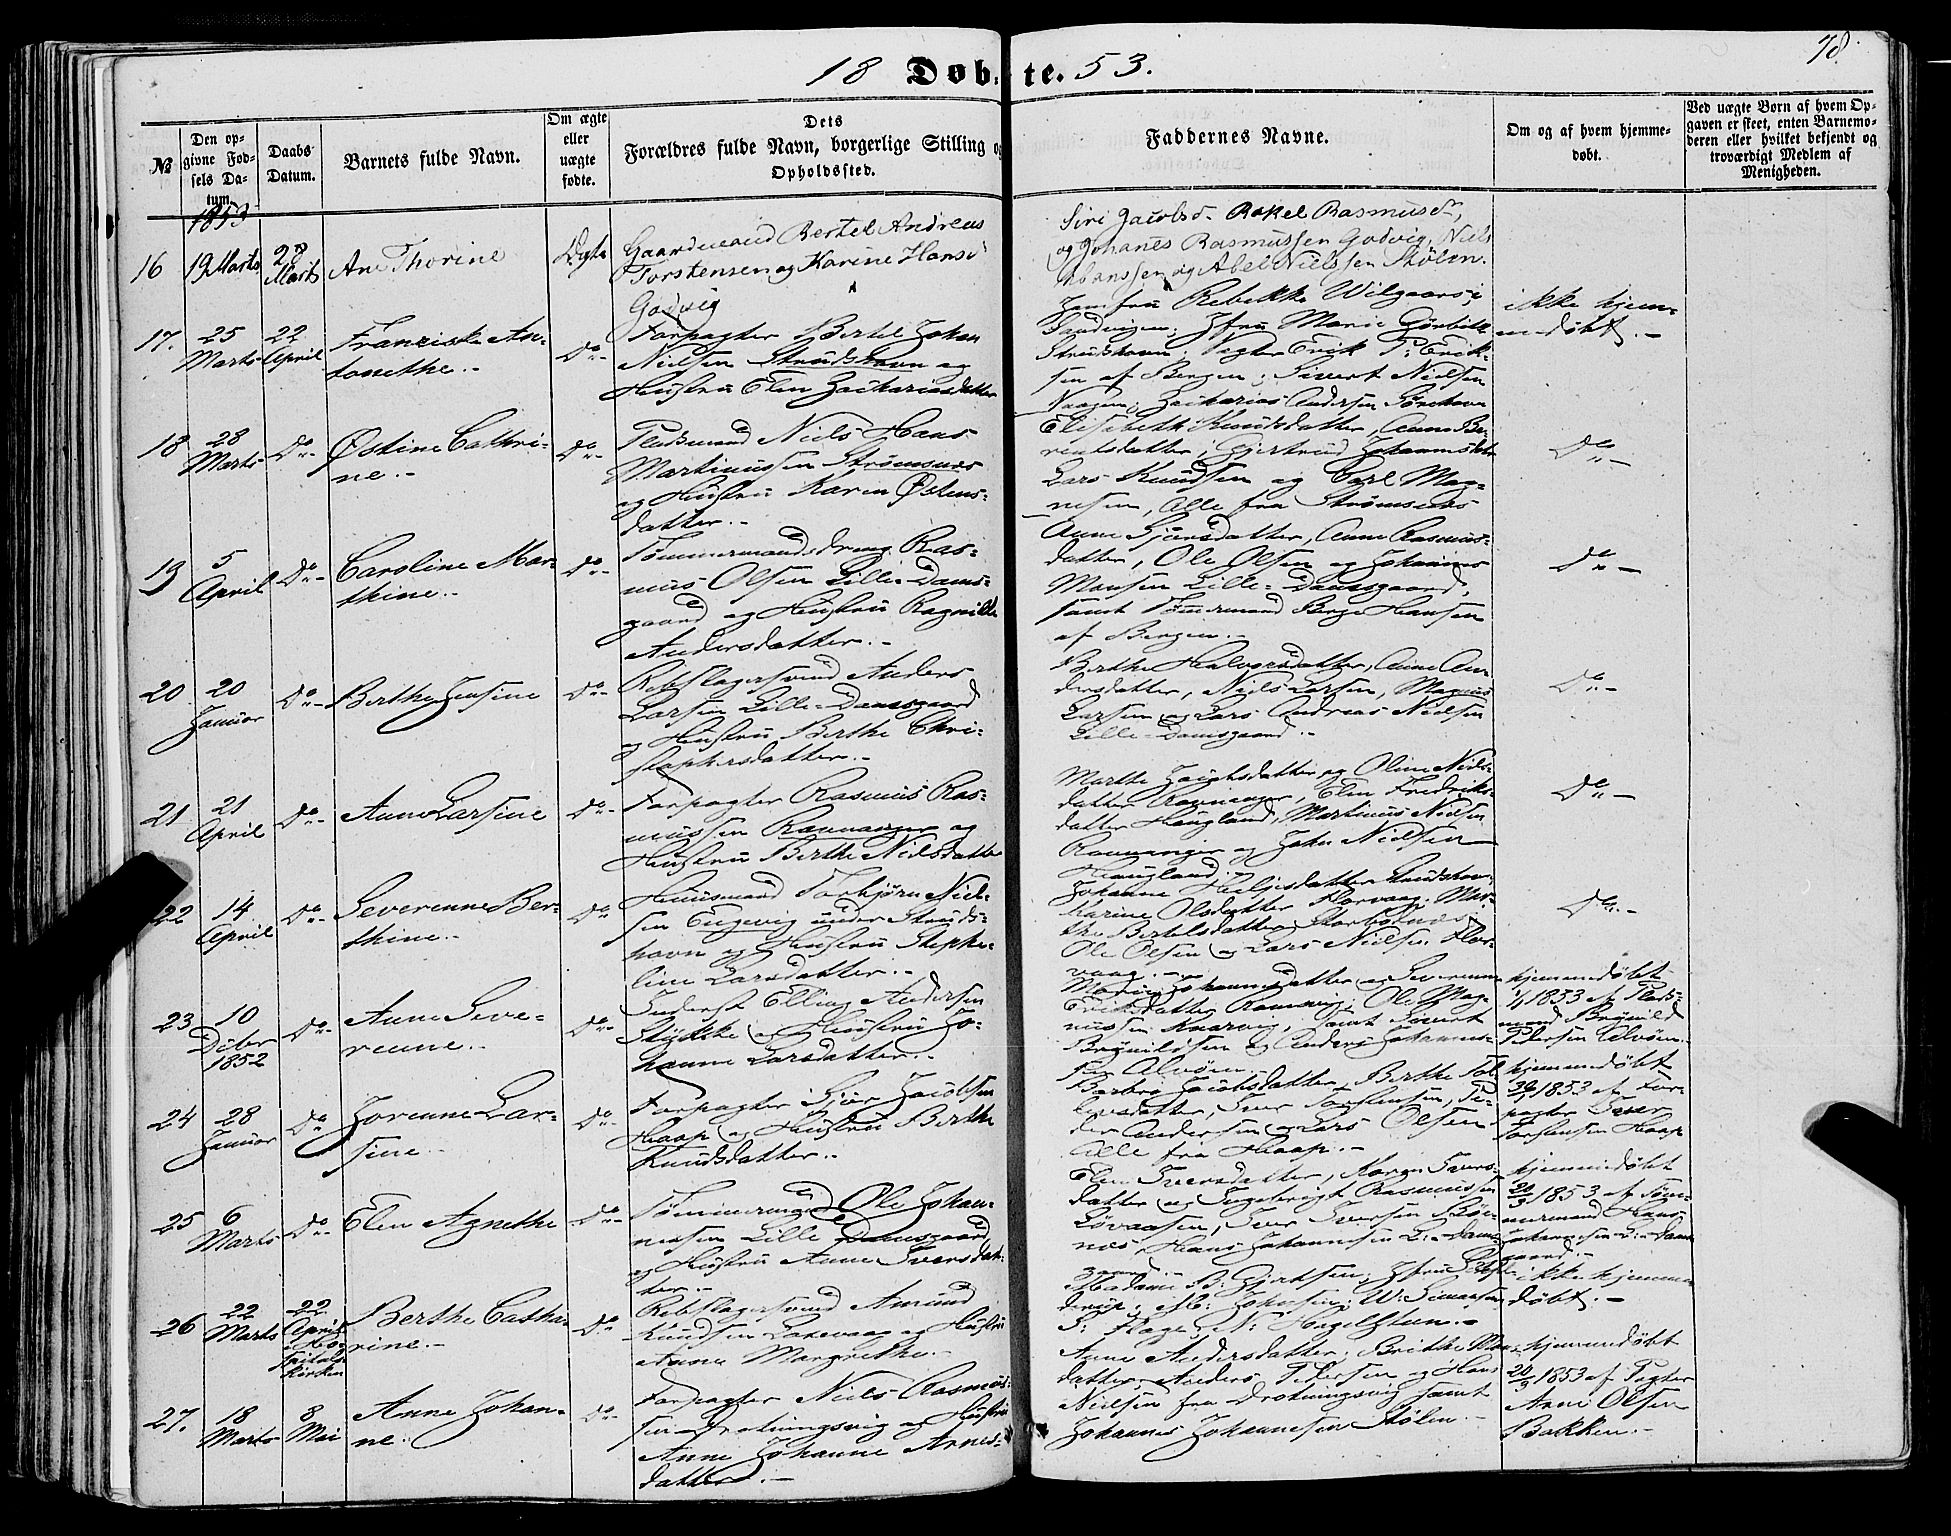 78.
18 Døbte. 53.
№
Den op-
givne Fød-
sels Da-
tum.
Daabs
Datum.
Barnets fulde Navn.
Om ægte
eller
uægte
fødte.
Dets
Forældres fulde Navn, borgerlige Stilling og
Opholdssted.
Faddernes Navne.
Om og af hvem hjemme-
døbt.
Ved uægte Børn af hvem Op-
gaven er skeet, enten Barnemo-
deren eller hvilket bekjendt og
troværdigt Medlem af
Menigheden.
1853
16
19 Marts
28
Marts
Ane Thorine
Ægte
Gaardmand Bertel Andreas
Torstensen og Karine Hansd
Godvig
Siri Jacobsd. Rakel Rasmusdr,
og Johanes Rasmussen Godvig, Niels
og Abel Nielssen Stølen.
17.
25
Marts
22
April
Franziske An-
tonethe.
Do
Forpagter Bertel Johan
Nielsen Strudshavn og
Hustru Elen Zachariasdatter
Jomfru Rebekke Wilgaars
Jfru Marie
Strudshavn, Erik P. Erik-
sen af Bergen; Sivert Nielsen
Vaagen; Zacharias Andersen
ikke hjem-
medøbt.
18
28
Marts
Do
Østine Cathri-
ne.
Do
Pladsmand Niels Hans
Martinussen Strømsnes
og Hustru Karen Østens-
datter.
Elisabeth Knudsdatter, Anne Be-
rentsdatter, Gjertrud Johannesdtr
Lars Knudsen og Carl Mag-
nesen, Alle fra Strømsnes
Do
19
5
April
Do
Caroline Mar-
thine.
Do
Tømmermandsdreng Ras-
mus Olsen Lille-Dams-
gaard og Hustru Ragnilde
Andersdatter.
Anne Sjursdatter, Anne Rasmus-
datter, Ole Olsen og Johannes
Monsen Lille-Damsgaard,
samt Tømmermand Berge Hansen
af Bergen.
Do
20
20
Januar
Do
Berthe Jensine
Do
Rebslagersvend Anders
Larsen Lille-Damsgaard
og Hustru Berthe Chri-
stophersdatter.
Berthe Halvorsdatter, Anne An-
dersdatter, Niels Larsen, Magnus
Larsen og Lars Andreas Nielsen
Lille-Damsgaard.
Do
21
21
April
Do
Anne Larsine
Do
Forpagter Rasmus Ras-
mussen Ravnanger og
Hustru Berthe Nielsdatter
Marthe Jacobsdatter og Oline Niels-
datter Ravnanger, Elen Fredriks-
datter Haugland, Martinus Nielsen
Ravnanger og John Nielsen
Haugland.
Do
22
14
April
Do
Severenne Ber-
thine.
Do
Huusmand Torbjørn Niel-
sen Engevig under Struds-
havn og Hustru Stephe-
line Larsdatter.
Johanne Heljesdatter Strudshavn,
Karine Olsdatter Florvaag, Mar-
the Bertelsdatter
Ole Olsen og Lars Nielsen Flor-
vaag.
Do
23
10
Dcbr
1852
Do
Anne Seve-
renne.
Do
Inderst Elling Andersen
Stykke og Hustru Jo-
hanne Larsdatter.
Marie Johannesdatter og Severenne
Eriksdatter Ravnevig, Ole Mag-
nussen Knarvig, samt Sivert
Brynildsen og Anders Johannes-
sen Alvøen.
hjemmedøbt
1/1 1853 af Plads-
mand Brynild
Pedersen Alvøen.
24
28
Januar
Do
Jorenne Lar-
sine.
Do
Forpagter Sjur Jacobsen
Haap og Hustru Berthe
Knudsdatter.
Barbro Jacobsdatter, Berthe Tol-
levsdatter, Iver Torstensen, Pe-
der Andersen og Lars Olsen
Alle fra Haap.
hjemmedøbt
30/1 1853 af For-
pagter Iver
Torstensen Haap
25
6
Marts
Do
Elen Agnethe
Do
Tømmermand Ole Johan-
nessen Lille Damsgaard
og Hustru Anne Iversdat-
ter.
Elen Iversdatter, Karen Ivers-
datter og Ingebrigt Rasmussen
Løvaasen, Iver Iversen Bøe-
næs, Hans Johannesen L:-Dams-
gaard.
hjemmedøbt
20/3 1853 af Tøm-
mermand Hans
Johannesen L:-Dams
gaard.
26
22
Marts
22
April
i Ho-
spitals
Kirken
Berthe Catha-
rine.
Do
Rebslagersvend Amund
Knudsen Laxevaag og Hustru
Anne Margrethe.
Madame B: Gjertsen; Jfru
M: Johnsen; W: Simonsen
S: Flage; N: Hegelstun.
ikke hjemme-
døbt.
27.
18
Marts
8
Mai
Anne Johan-
ne.
Do
Forpagter Niels Rasmus-
sen Drotningsvig og Hustru
Anne Johanne Arnes-
datter.
Anne Andersdatter, Brithe Mons-
datter, Anders Pedersen og Hans
Nielsen fra Drotningsvig samt
Johannes Johannesen Stølen.
hjemmedøbt
20/3 1853 af Pagter
Arne Olsen
Bakken.